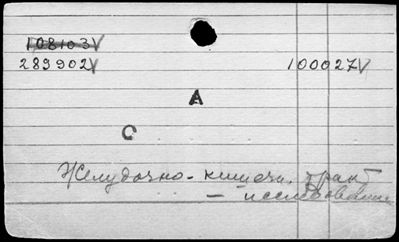 108103V
289902V 100027V
А
С
Желудочно-кишечн. тракт
— исследование